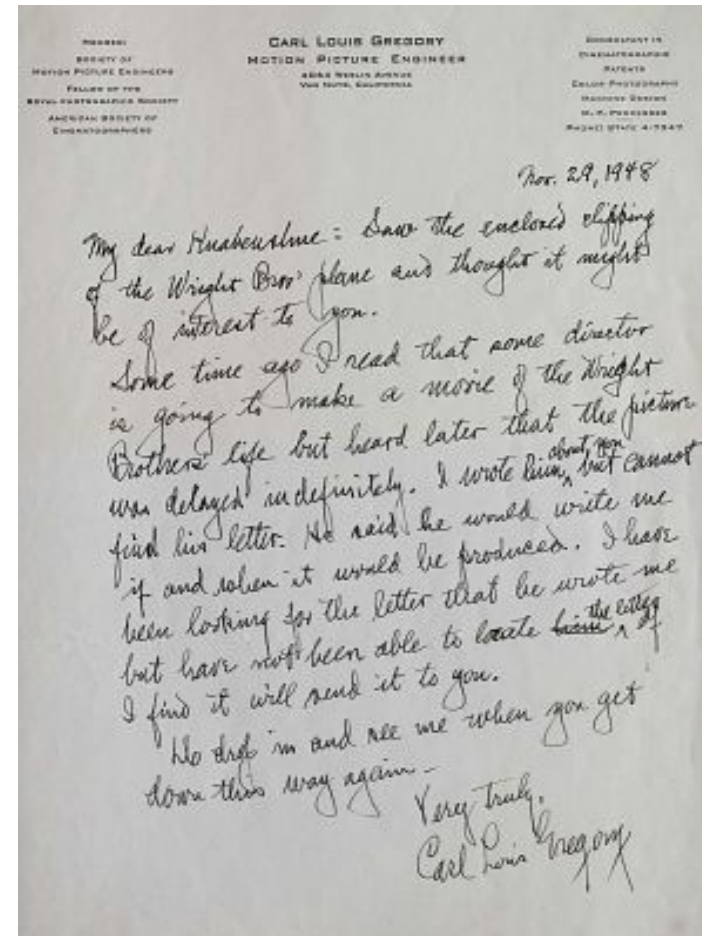 MEMBER:
SOCIETY OF
MOTION PICTURE ENGINEERS
FELLOW OF THE
ROYAL PHOTOGRAPHIC SOCIETY
AMERICAN SOCIETY OF
CINEMATOGRAPHERS
CARL LOUIS GREGORY
MOTION PICTURE ENGINEER
VAN NUYS, CALIFORNIA
CONSULTANT IN
CINEMATOGRAPHIC
PATENTS
COLOR PHOTOGRAPHY
MACHINE DESIGN
PHONE: STATE 4-7947
Nov. 29, 1948
My dear : Saw the enclosed clipping
of the Wright Bros' plane and thought it might
be of interest to you.
Some time ago I read that some director
is going to make a movie of the Wright
Brothers' life but heard later that the picture
was delayed indefinitely. I wrote him about you but cannot
find his letter. He said he would write me
if and when it would be produced. I have
been looking for the letter that he wrote me
but have not been able to locate him the letter. If
I find it will send it to you.
Do drop in and see me when you get
down this way again—
Very truly,
Carl Louis Gregory